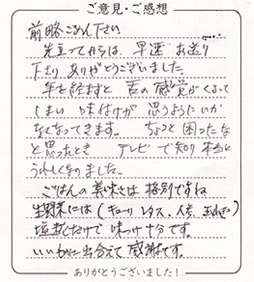 ご意見・ご感想
前略ごめん下さい
先立ってからは、早速お送り
下さり ありがとうございました
年を経ますと 舌の感覚がくるって
しまい 味付けが 思うようにいか
なくなってきます。 ちょっと困ったな
と思ったとき テレビで知り 本当に
うれしくなりました。
ごはんの美味さは 格別ですね
生野菜には（キューリ レタス、人参、玉ねぎ）
塩麹だけで 味つけ十分です。
いいものに出合えて 感謝です。
ありがとうございました！